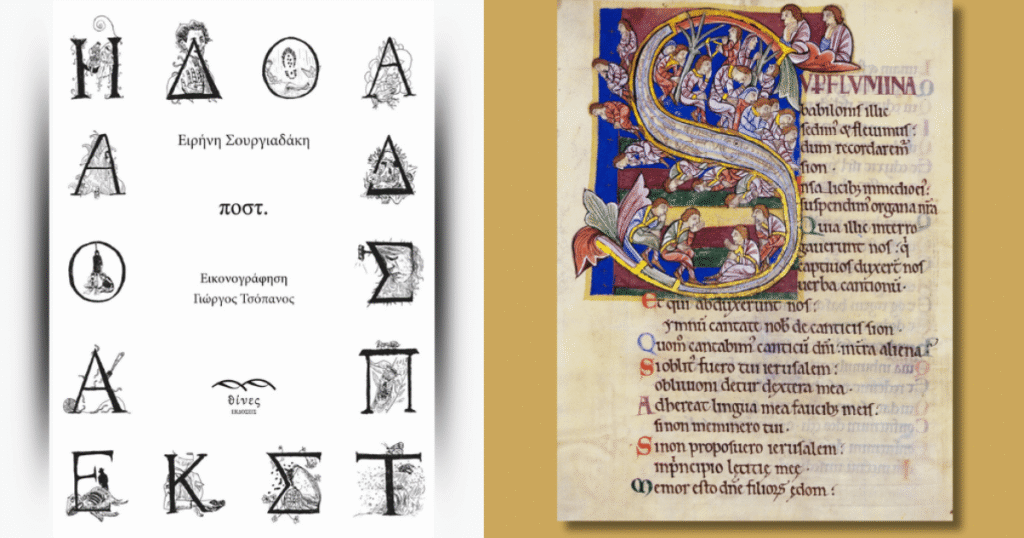 Η Δ Ο Α
Α Δ
Ειρήνη Σουργιαδάκη
ποστ.
Ο Σ
Εικονογράφηση
Γιώργος Τσόπανος
Α Π
θίνες
ΕΚΔΟΣΕΙΣ
Ε Κ Σ Τ
SUP FLUMINA
babilonis illic
sedim' & fleuimus:
dum recordarem'
sion.
Insalicib; inmedio ei':
suspendim' organa nr̄a
Quia illic interro
gauerunt nos: q̇
captiuos duxer̄t nos
uerba cantionū.
Et qui abduxerunt nos:
ymnū cantate nob̄ de canticis sion.
Quom̄ cantabim' canticū dn̄i: intr̄a aliena?
Si oblit' fuero tui ierusalem:
obliuioni detur dextera mea.
Adhereat lingua mea faucib; meis:
si non meminero tui.
Si non proposuero ierusalem:
inp̄ncipio leticie mee
Memor esto dn̄e filioꝝ edom: